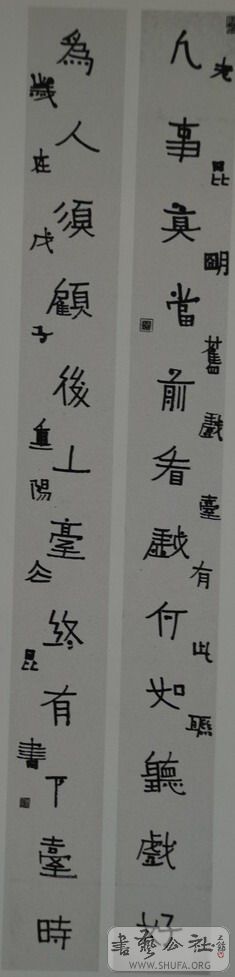 昆明舊戲臺有此聯
凡事莫當前看戲何如聽戲好
為人須顧後上臺終有下臺時
歲在戊子重陽昆書
書藝公社
WWW.SHUFA.ORG